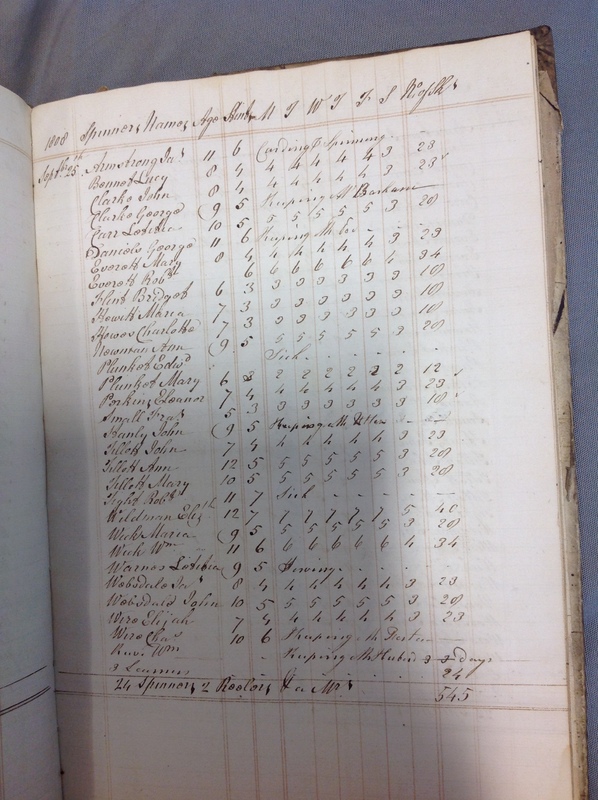 1808 Spinners Names Age Stint M T W T F S No of Sks
Septbr 25th Armstrong Jas 11 6 Carding & Spinning
Bennet Lucy 8 4 4 4 4 4 4 3 23
Clarke John 8 4 4 4 4 4 4 3 23
Clarke George 9 5 Keeping Mr Barham
Carr Lotitia 10 5 5 5 5 5 5 3 28
Daniels George 11 6 Keeping Mr
Everett Mary 8 4 4 4 4 4 4 3 23
Everett Robt 6 6 6 6 6 6 4 34
Flint Bridget 6 3 3 3 3 3 3 3 18
Howitt Maria 7 3 3 3 3 3 3 3 18
Howes Charlotte 7 3 3 3 3 3 3 3 18
Newman Ann 9 5 5 5 5 5 5 3 28
Plunket Edwd Sick
Plunket Mary 6 2 2 2 2 2 2 2 12
Perkins Eleanor 7 4 4 4 4 4 4 3 23
Small Fras 5 3 3 3 3 3 3 3 18
Stanly John 9 5 Keeping Mr
Tillett John 7 4 4 4 4 4 4 3 23
Tillett Ann 12 5 5 5 5 5 5 3 28
Tillett Mary 10 5 5 5 5 5 5 3 28
Tight Robt 11 7 Sick
Wildman Elizth 12 7 7 7 7 7 7 5 40
Wick Maria 9 5 5 5 5 5 5 3 28
Wick Wm 11 6 6 6 6 6 6 4 34
Warnes Lotitia 9 5 Sewing
Websdale Jas 8 4 4 4 4 4 4 3 23
Websdale John 10 5 5 5 5 5 5 3 28
Wire Elijah 7 4 4 4 4 4 4 3 23
Wire Chas 10 6 Keeping Mr
Wm Keeping Mr 3 days
3 Learners 24
24 Spinners 2 Reelers & a Mrs 545